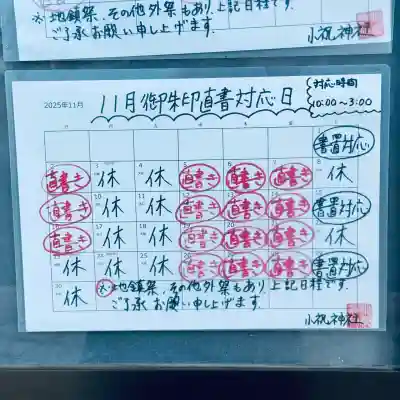 ※地鎮祭、その他外祭もあり上記日程です。
ご了承お願い申し上げます。
小祝神社
2025年11月
11月御朱印直書対応日
対応時間
10:00〜3:00
書置対応
直書き 休 休 直書き 直書き 直書き 休
直書き 休 休 直書き 直書き 直書き 書置対応
直書き 休 休 直書き 直書き 直書き 休
休 休 休 直書き 直書き 直書き 書置対応
休
※地鎮祭、その他外祭もあり上記日程です。
ご了承お願い申し上げます。
小祝神社